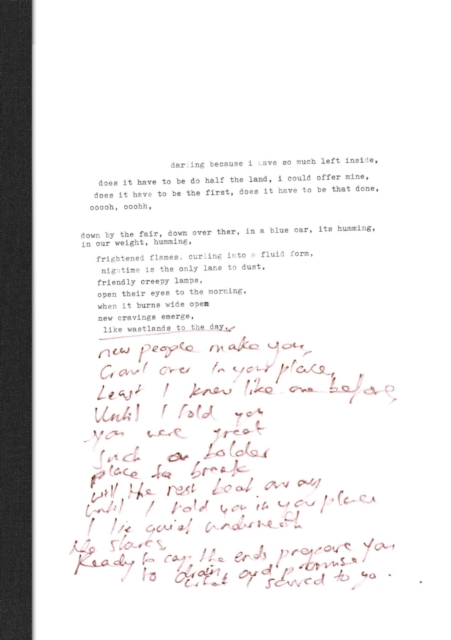 darling because i have so much left inside,
does it have to be do half the land, i could offer mine,
does it have to be the first, does it have to be that done,
ooooh, ooohh,
down by the fair, down over ther, in a blue car, its humming,
in our weight, humming,
frightened flames. curling into a fluid form,
nightime is the only lane to dust,
friendly creepy lamps,
open their eyes to the morning,
when it burns wide open
new cravings emerge,
like wastlands to the day.
new people make you,
Crawl over In your place,
Least I knew like one before,
Until I told you
you were great
Such a bolder
place to break
will the rest beat away
Until I told you in your place
I lie quiet underneath
the stares
Ready to cap the ends prepare you
to drain and promise
I served to you.